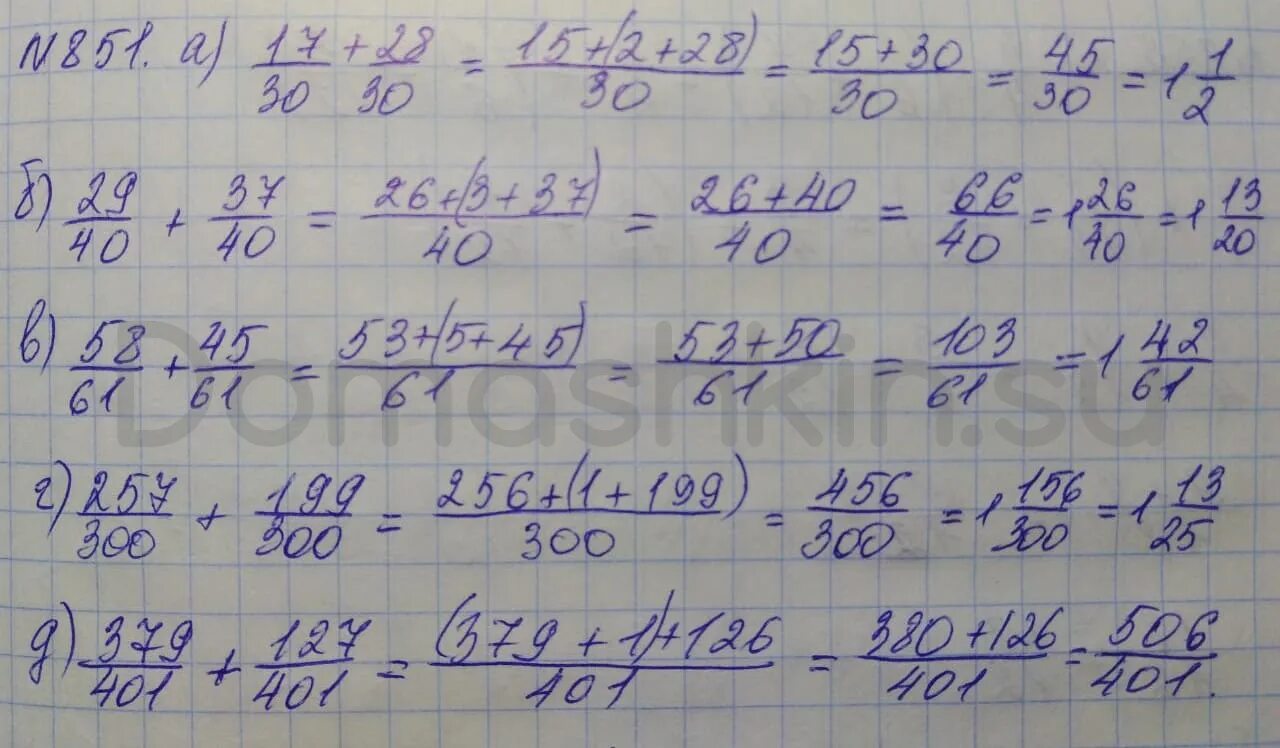 N851. а) 17/30 + 28/30 = 15+(2+28)/30 = 15+30/30 = 45/30 = 1 1/2
б) 29/40 + 37/40 = 26+(3+37)/40 = 26+40/40 = 66/40 = 1 26/40 = 1 13/20
в) 58/61 + 45/61 = 53+(5+45)/61 = 53+50/61 = 103/61 = 1 42/61
г) 257/300 + 199/300 = 256+(1+199)/300 = 456/300 = 1 156/300 = 1 13/25
д) 379/401 + 127/401 = (379+1)+126/401 = 380+126/401 = 506/401.
Domashkin.su